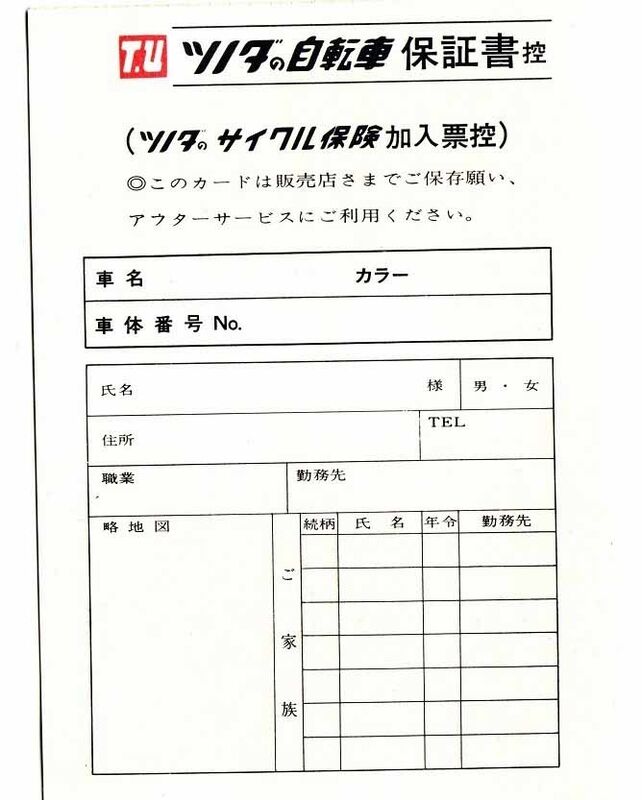 T.U ツノダの自転車 保証書控
(ツノダのサイクル保険加入票控)
◎このカードは販売店さまでご保存願い、
アフターサービスにご利用ください。
車名 カラー
車体番号 No.
氏名 様 男・女
住所 TEL
職業 勤務先
略地図 ご家族 続柄 氏名 年令 勤務先